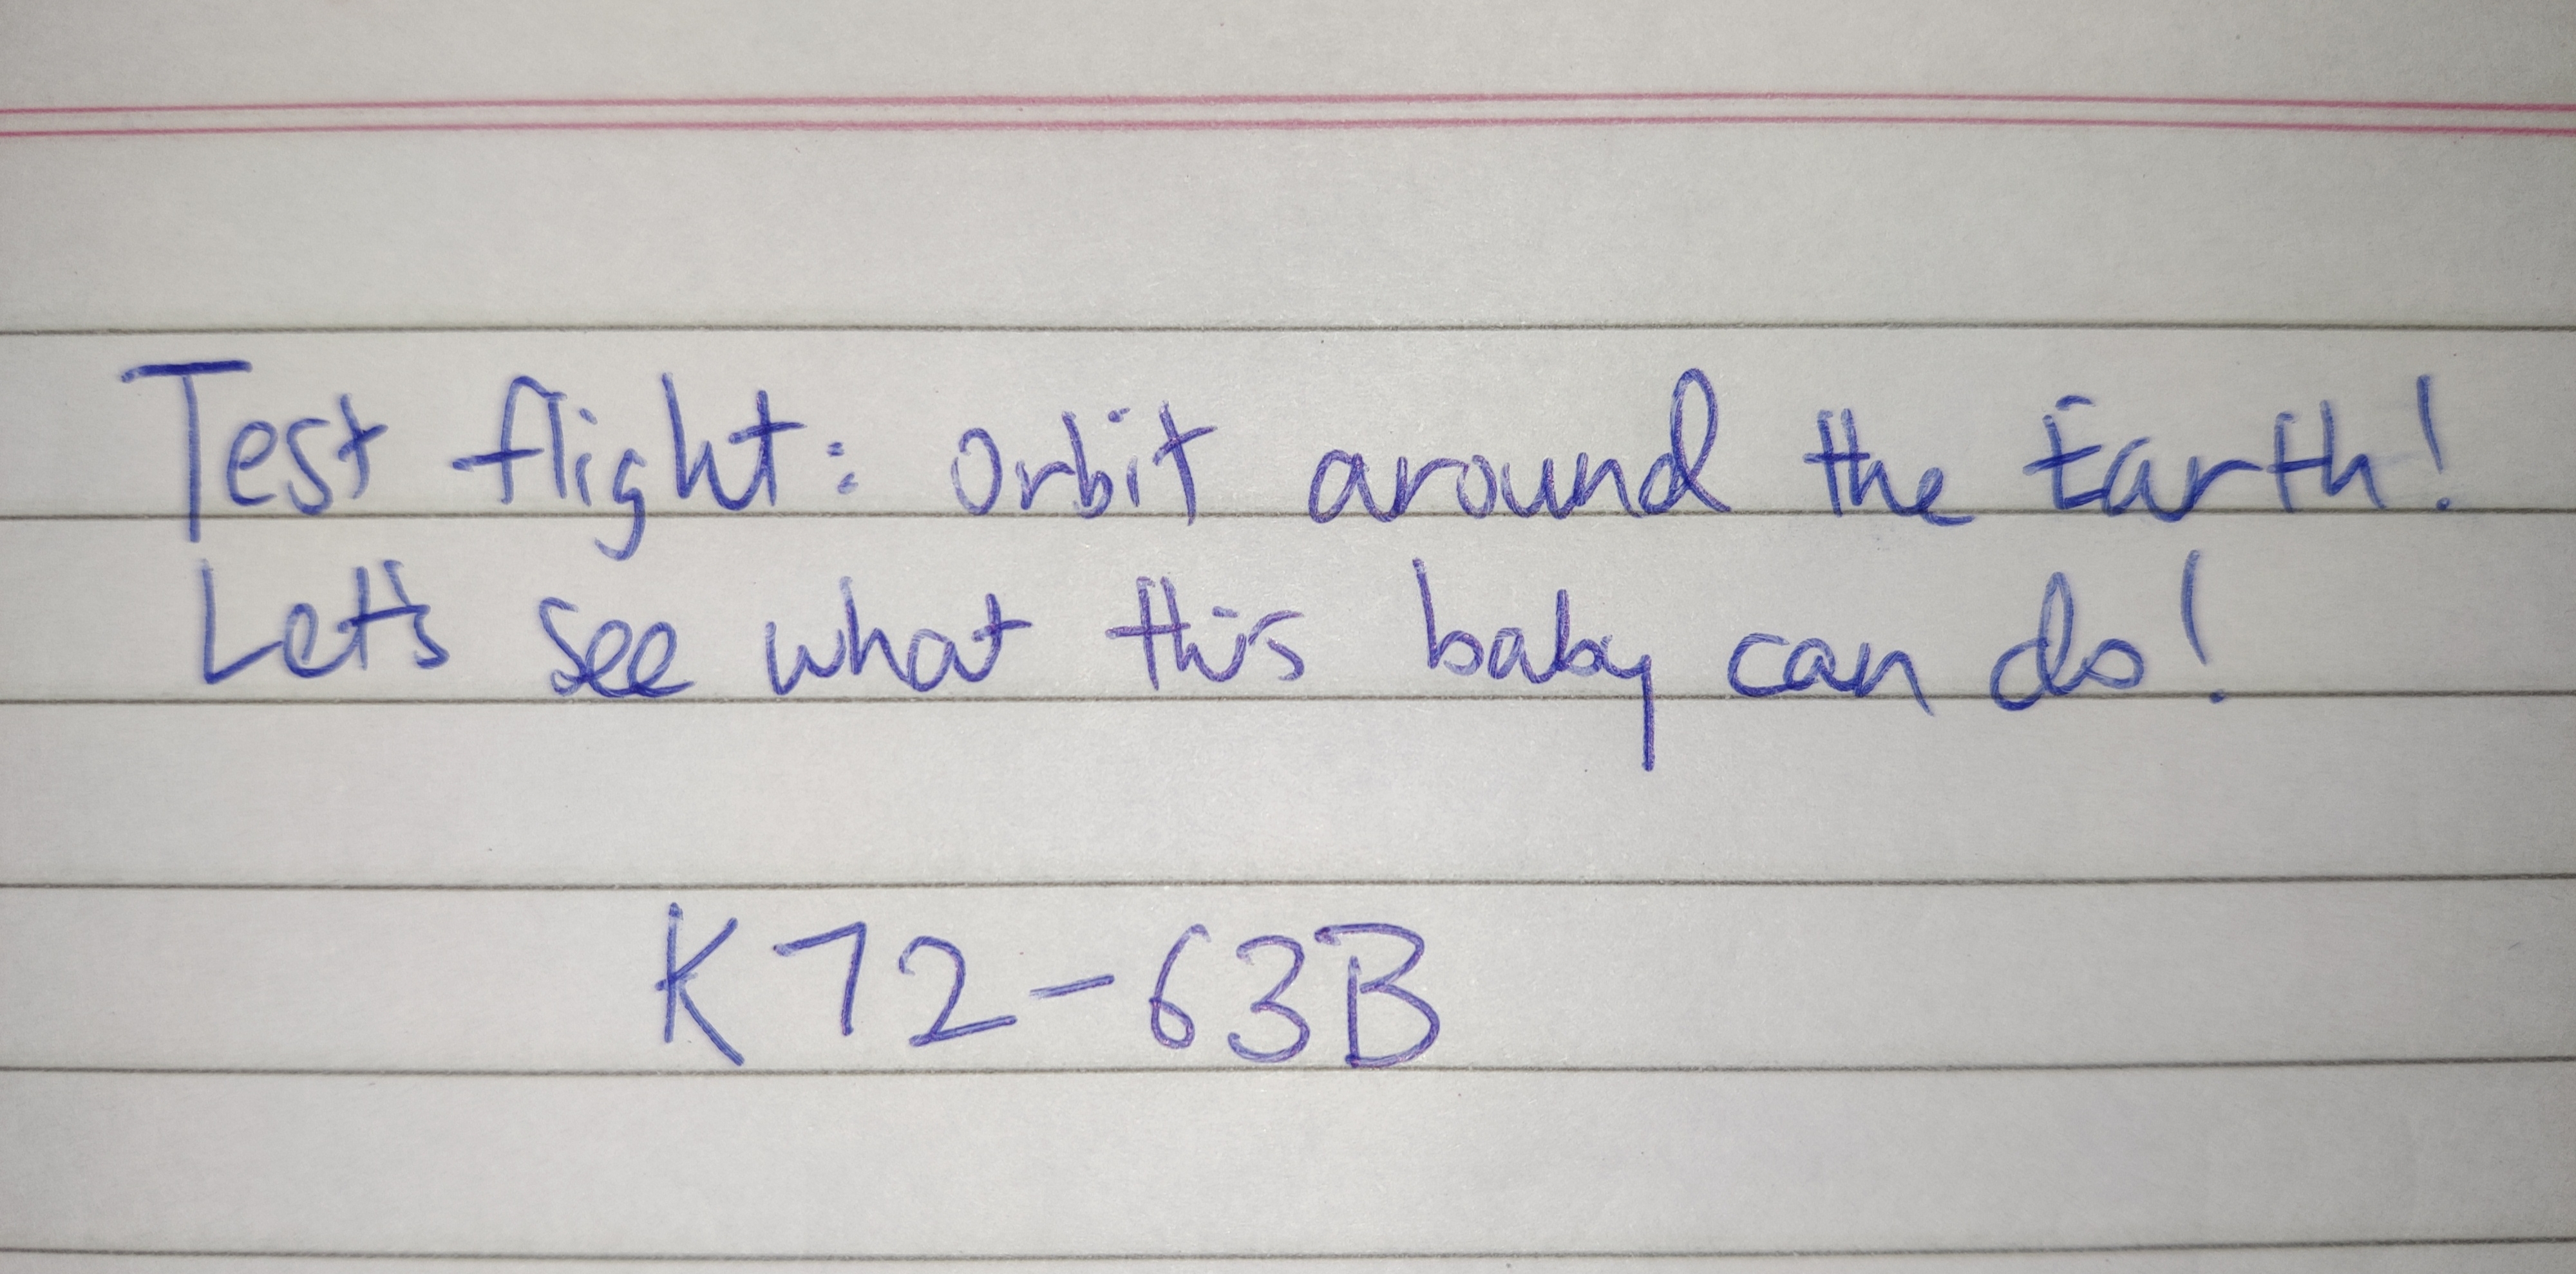 Test flight: Orbit around the Earth!
Let's see what this baby can do!
K72-63B